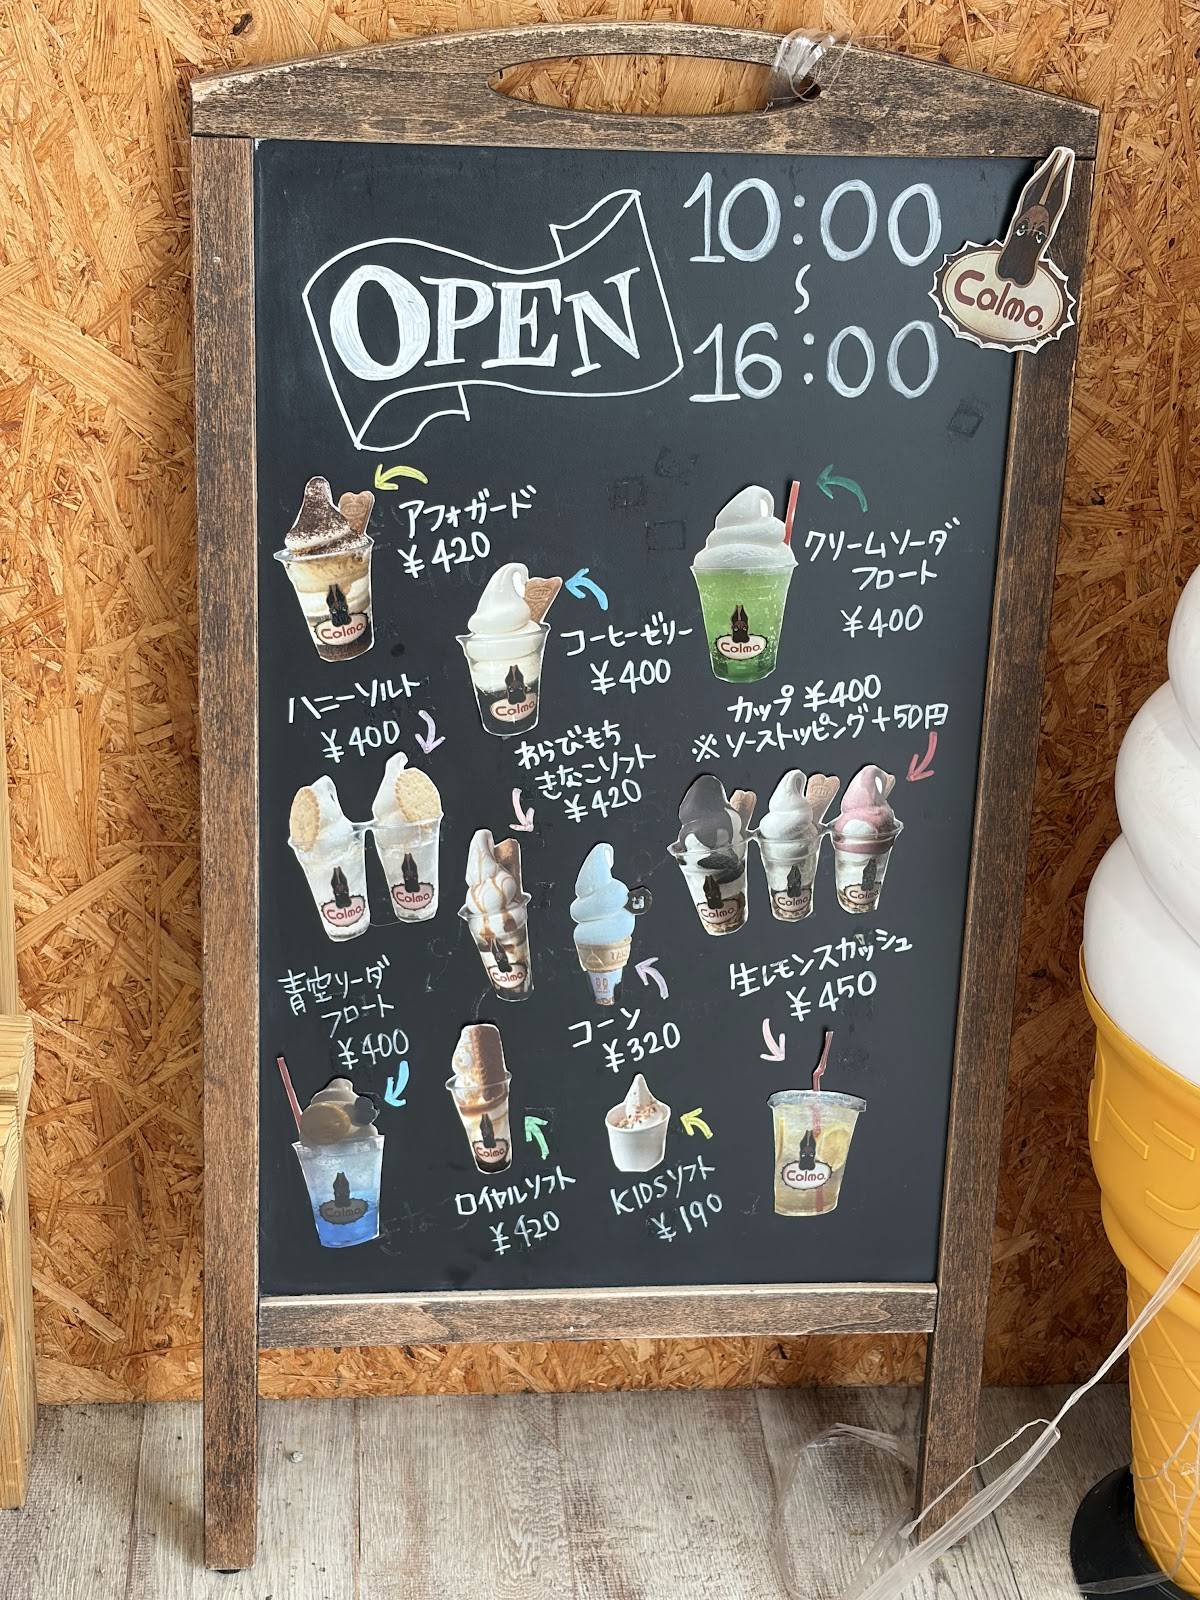 OPEN
10:00
〜
16:00
Colmo.
アフォガード
¥420
コーヒーゼリー
¥400
クリームソーダ
フロート
¥400
ハニーソルト
¥400
わらびもち
きなこソフト
¥420
カップ ¥400
※ソーストッピング+50円
青空ソーダ
フロート
¥400
コーン
¥320
生レモンスカッシュ
¥450
ロイヤルソフト
¥420
KIDSソフト
¥190
Colmo.
Colmo.
Colmo.
Colmo.
Colmo.
Colmo.
Colmo.
Colmo.
Colmo.
Colmo.
Colmo.
Colmo.